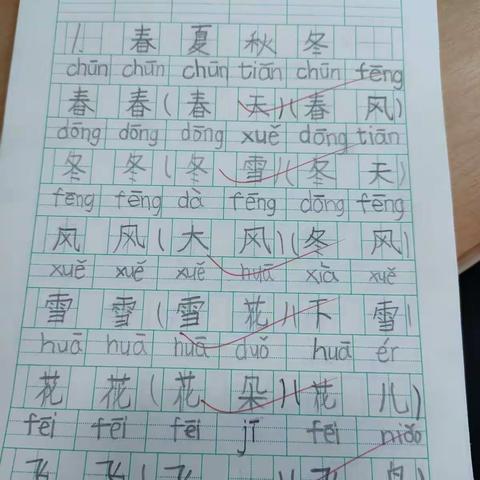 1. 春 夏 秋 冬
chūn chūn chūn tiān chūn fēng
春 春 ( 春 天 ) ( 春 风 )
dōng dōng dōng xuě dōng tiān
冬 冬 ( 冬 雪 ) ( 冬 天 )
fēng fēng dà fēng dōng fēng
风 风 ( 大 风 ) ( 冬 风 )
xuě xuě xuě huā xià xuě
雪 雪 ( 雪 花 ) ( 下 雪 )
huā huā huā duǒ huā ér
花 花 ( 花 朵 ) ( 花 儿 )
fēi fēi fēi jī fēi niǎo
飞 飞 ( 飞 ) ( 飞 鸟 )